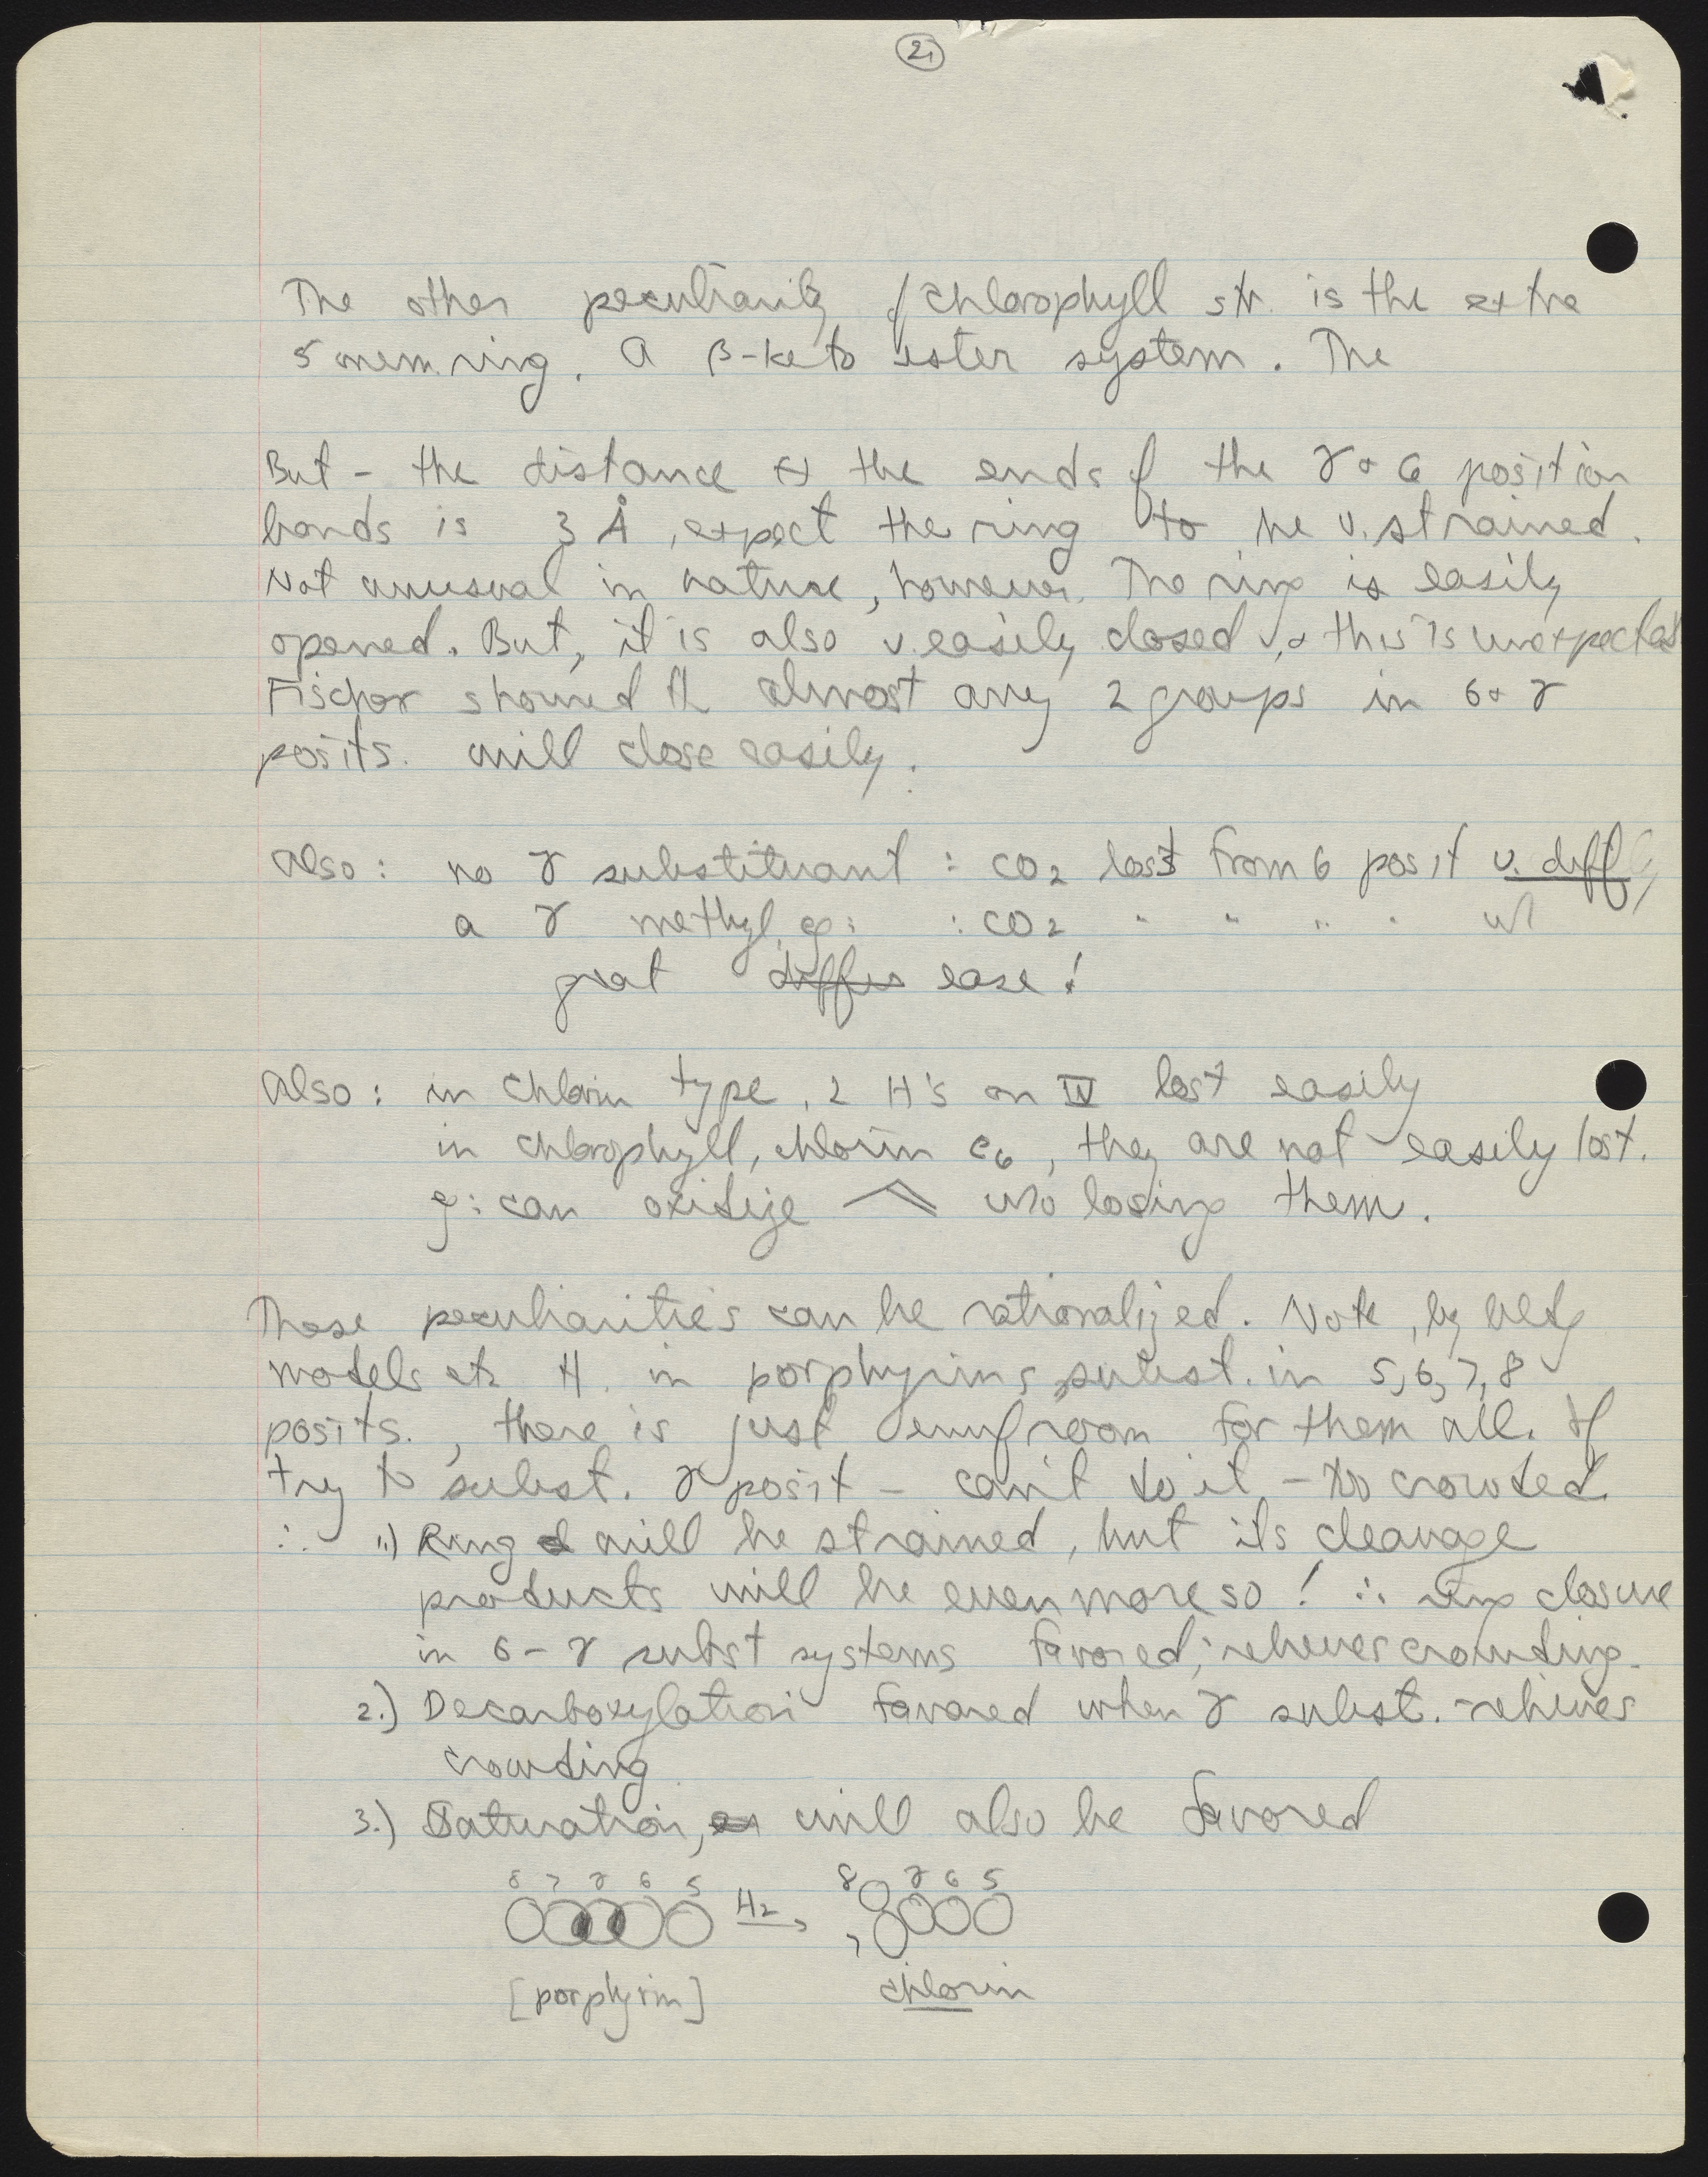 2,
The other peculiarity of chlorophyll str. is the extra
5 mem. ring. A β-keto ester system. The
But - the distance the ends of the γ + 6 position
bonds is 3 Å, expect the ring to be v. strained.
Not unusual in nature, however. The ring is easily
opened. But, it is also v. easily closed, + this is unexpected
Fischer showed almost any 2 groups in 6 + γ
posits. will close easily.
Also: no γ substituant : CO2 lost from 6 posit v. diff
a γ methyl, eg: : CO2 " " " " w/
great differ ease!
Also: in chlorin type, 2 H's on IV lost easily
in chlorophyll, chlorin e6, they are not easily lost.
eg: can oxidize w/o losing them.
These peculiarities can be rationalized. Note, by bldg
models in porphyrins, subst. in 5, 6, 7, 8
posits., there is just enuf room for them all. If
try to subst. γ posit - can't do it - too crowded.
∴ 1.) Ring will be strained, but its cleavage
products will be even more so! ∴ ring closure
in 6-γ subst systems favored; relieves crowding.
2.) Decarboxylation favored when γ subst. - relieves
crowding
3.) Saturation, will also be favored
8 7 γ 6 5 H2 8 7 γ 6 5
[porphyrin] chlorin